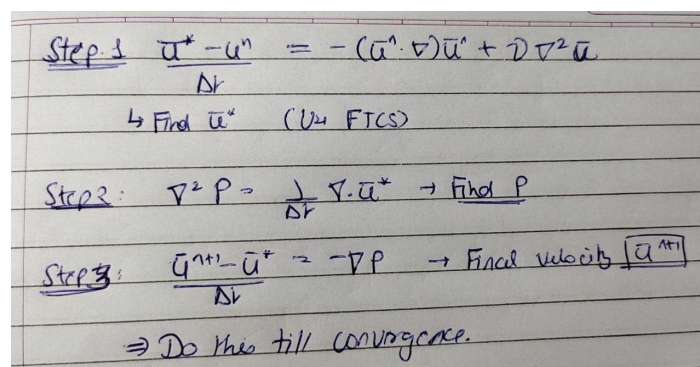 Step 1 ū* - uⁿ / Δt = -(ūⁿ·∇)ūⁿ + ν∇²ū
↳ Find ū* (Use FTCS)
Step 2: ∇²P = 1/Δt ∇·ū* → Find P
Step 3: ūⁿ⁺¹ - ū* / Δt = -∇P → Final velocity ūⁿ⁺¹
⇒ Do this till convergence.